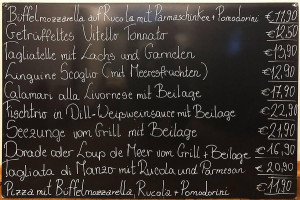 Büffelmozzarella auf Rucola mit Parmaschinken + Pomodorini €11,90
Getrüffeltes Vitello Tonnato €12,50
Tagliatelle mit Lachs und Garnelen €13,90
Linguine Scoglio (mit Meeresfrüchten) €12,90
Calamari alla Livornese mit Beilage €17,90
Fischtrio in Dill-Weißweinsauce mit Beilage €22,90
Seezunge vom Grill mit Beilage €21,90
Dorade oder Loup de Meer vom Grill + Beilage €16,90
Tagliata di Manzo mit Rucola und Parmesan €20,90
Pizza mit Büffelmozzarella, Rucola + Pomodorini €11,90